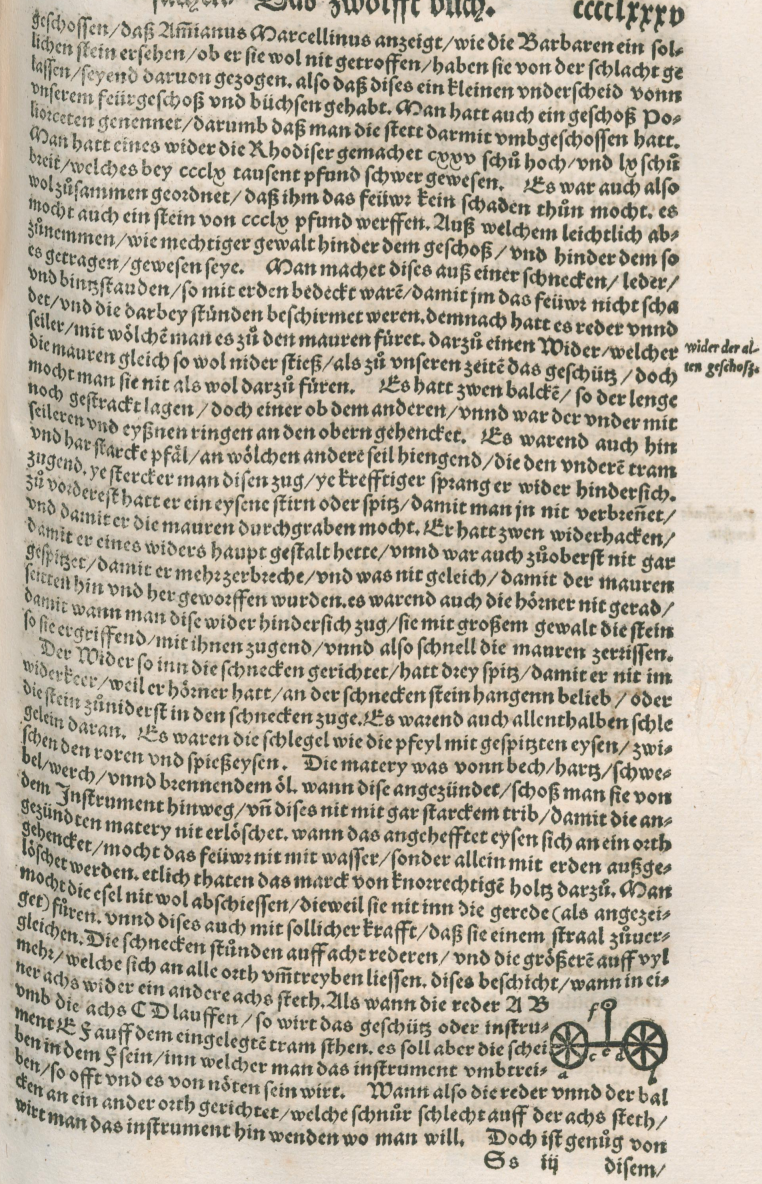 Das zwölfft buch. cccclxxxv
geschossen/daß Am̃ianus Marcellinus anzeigt/wie die Barbaren ein sol⸗
lichen stein ersehen/ob er sie wol nit getroffen/haben sie von der schlacht ge
lassen/seyend daruon gezogen. also daß dises ein kleinen vnderscheid vonn
vnserem feürgeschoß vnd büchsen gehabt. Man hatt auch ein geschoß Po⸗
liorceten genennet/darumb daß man die stett darmit vmbgeschossen hatt.
Man hatt eines wider die Rhodiser gemachet cxxv schů hoch/vnd lx schů
breit/welches bey ccclx tausent pfund schwer gewesen. Es war auch also
wol zůsammen geordnet/daß ihm das feüwr kein schaden thůn mocht. es
mocht auch ein stein von ccclx pfund werffen. Auß welchem leichtlich ab⸗
zůnemmen/wie mechtiger gewalt hinder dem geschoß/vnd hinder dem so
es getragen/gewesen seye. Man machet dises auß einer schnecken/leder/
vnd bintzstauden/so mit erden bedeckt warẽ/damit jm das feüwr nicht scha
det/vnd die darbey stůnden beschirmet weren. demnach hatt es reder vnnd
seiler/mit wölchẽ man es zů den mauren füret. darzů einen Wider/welcher
die mauren gleich so wol nider stieß/als zů vnseren zeitẽ das geschütz/doch
mocht man sie nit als wol darzů füren. Es hatt zwen balckẽ/so der lenge
noch gestrackt lagen/doch einer ob dem anderen/vnnd war der vnder mit
seileren vnd eyßnen ringen an den obern gehencket. Es warend auch hin
vnd har starcke pfäl/an wölchen andere seil hiengend/die den vnderẽ tram
zugend. ye stercker man disen zug/ye krefftiger sprang er wider hindersich.
zů vorderest hatt er ein eysene stirn oder spitz/damit man jn nit verbreñet/
vnd damit er die mauren durchgraben mocht. Er hatt zwen widerhacken/
damit er eines widers haupt gestalt hette/vnnd war auch zůoberst nit gar
gespitzet/damit er mehr zerbreche/vnd was nit geleich/damit der mauren
seitten hin vnd her geworffen wurden. es warend auch die hörner nit gerad/
damit wann man dise wider hindersich zug/sie mit großem gewalt die stein
so sie ergriffend/mit ihnen zugend/vnnd also schnell die mauren zerrissen.
Der Wider so inn die schnecken gerichtet/hatt drey spitz/damit er nit im
widerkeer/weil er hörner hatt/an der schnecken stein hangenn belieb/oder
die stein zůniderst in den schnecken zuge. Es warend auch allenthalben schle
gelein daran. Es waren die schlegel wie die pfeyl mit gespitzten eysen/zwi⸗
schen den roren vnd spießeysen. Die matery was vonn bech/hartz/schwe⸗
bel/werch/vnnd brennendem öl. wann dise angezündet/schoß man sie von
dem Instrument hinweg/vñ dises nit mit gar starckem trib/damit die an⸗
gezündten matery nit erlöschet. wann das angehefftet eysen sich an ein orth
gehencket/mocht das feüwr nit mit wasser/sonder allein mit erden außge⸗
löschet werden. etlich thaten das marck von knorrechtigẽ holtz darzů. Man
mocht die esel nit wol abschiessen/dieweil sie nit inn die gerede (als angezei⸗
get) füren. vnnd dises auch mit sollicher krafft/daß sie einem straal zůuer⸗
gleichen. Die schnecken stůnden auff acht rederen/vnd die größerẽ auff vyl
mehr/welche sich an alle orth vm̃treyben liessen. dises beschicht/wann in ei⸗
ner achs wider ein andere achs steth. Als wann die reder A B
vmb die achs C D lauffen/so wirt das geschütz oder instru⸗
ment E F auff dem eingelegtẽ tram sthen. es soll aber die schei
ben in dem F sein/inn welcher man das instrument vmbtrei⸗
ben/so offt vnd es von nöten sein wirt. Wann also die reder vnnd der bal
cken an ein ander orth gerichtet/welche schnůr schlecht auff der achs steth/
wirt man das instrument hin wenden wo man will. Doch ist genůg von
Ss iij disem/
wider der al⸗
ten geschoß.
f
c e d
a b